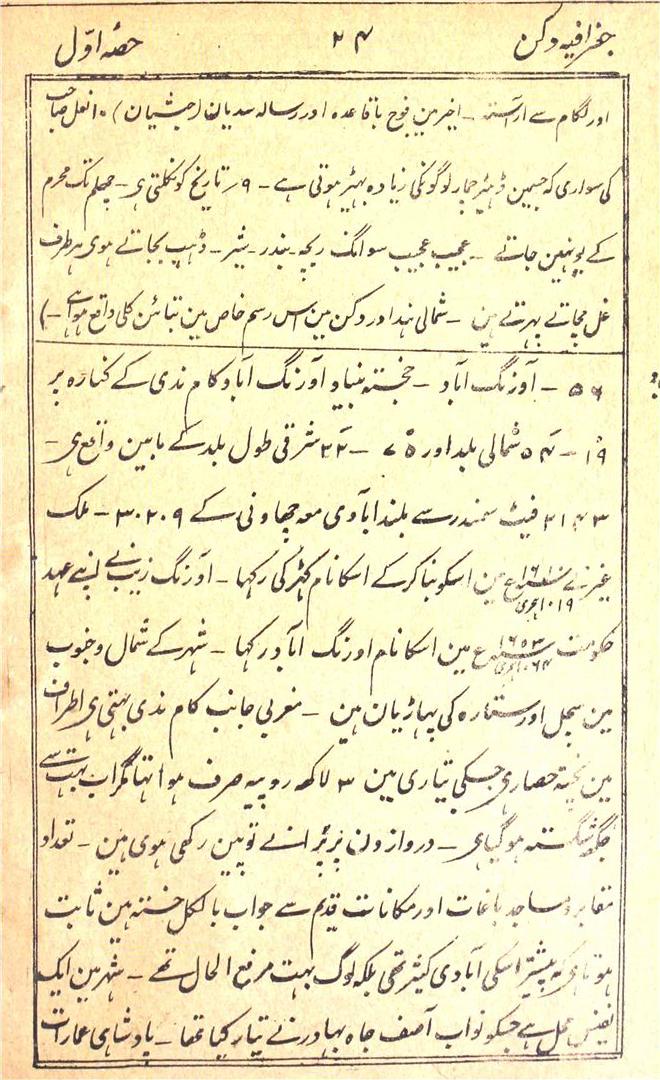 جغرافیہ دکن ۲۴ حصہ اوّل
اور لگام سے آراستہ ۔ اخیر مین فوج باقاعدہ اور رسالہ سدیان (حبشیان) ۔ نعل صاحب
کی سواری کہ جسمین ڈہیڑ چمار لوگونکی زیادہ بہیڑ ہوتی ہے ۔ ۹ تاریخ کو نکلتی ہی ۔ چہلم تک محرم
کے پہنین جاتے ۔ عجیب عجیب سوانگ ریچہ ۔ بندر ۔ شیر ۔ ڈہپ بجاتے ہوی ہر طرف
غل مچاتے پہرتے ہین ۔ شمالی ہند اور دکن مین اس رسم خاص مین تبائن کلی واقع ہوا ہے ۔)
۵۶ ۔ اورنگ آباد ۔ خجستہ بنیاد اورنگ آباد کام ندی کے کنارہ پر
۱۹ ۔ ۵۴ شمالی بلد اور ۷۵ ۔ ۲۲ شرقی طول بلد کے مابین واقع ہی ۔
۲۱۴۳ فیٹ سمندر سے بلند آبادی معہ چہاونی کے ۳۰۲۰۹ ۔ ملک
عنبر نے ۱۶۱۰ع ۱۰۱۹ہجری مین اسکو بنا کر کے اسکا نام کہڑکی رکہا ۔ اورنگ زیب نے اپنے عہد
حکومت ۱۶۵۳ع ۱۰۶۴ہجری مین اسکا نام اورنگ آباد رکہا ۔ شہر کے شمال و جنوب
مین سچل اور ستارہ کی پہاڑیان ہین ۔ مغربی جانب کام ندی بہتی ہی اطراف
مین پختہ حصار ہی جسکی تیاری مین ۳ لاکھ روپیہ صرف ہوا تہا مگر اب بہت سے
جگہ شکستہ ہوگیا ہی ۔ دروازون پر پرانے توپین رکہی ہوی ہین ۔ تعداد
مقابر و مساجد باغات اور مکانات قدیم سے جو اب بالکل خستہ ہین ثابت
ہوتا ہی کہ پیشتر اسکی آبادی کثیر تھی بلکہ لوگ بہت مرفع الحال تھے ۔ شہر مین ایک
نفیس محل ہے جسکو نواب آصف جاہ بہادر نے تیار کیا تھا ۔ بادشاہی عمارات